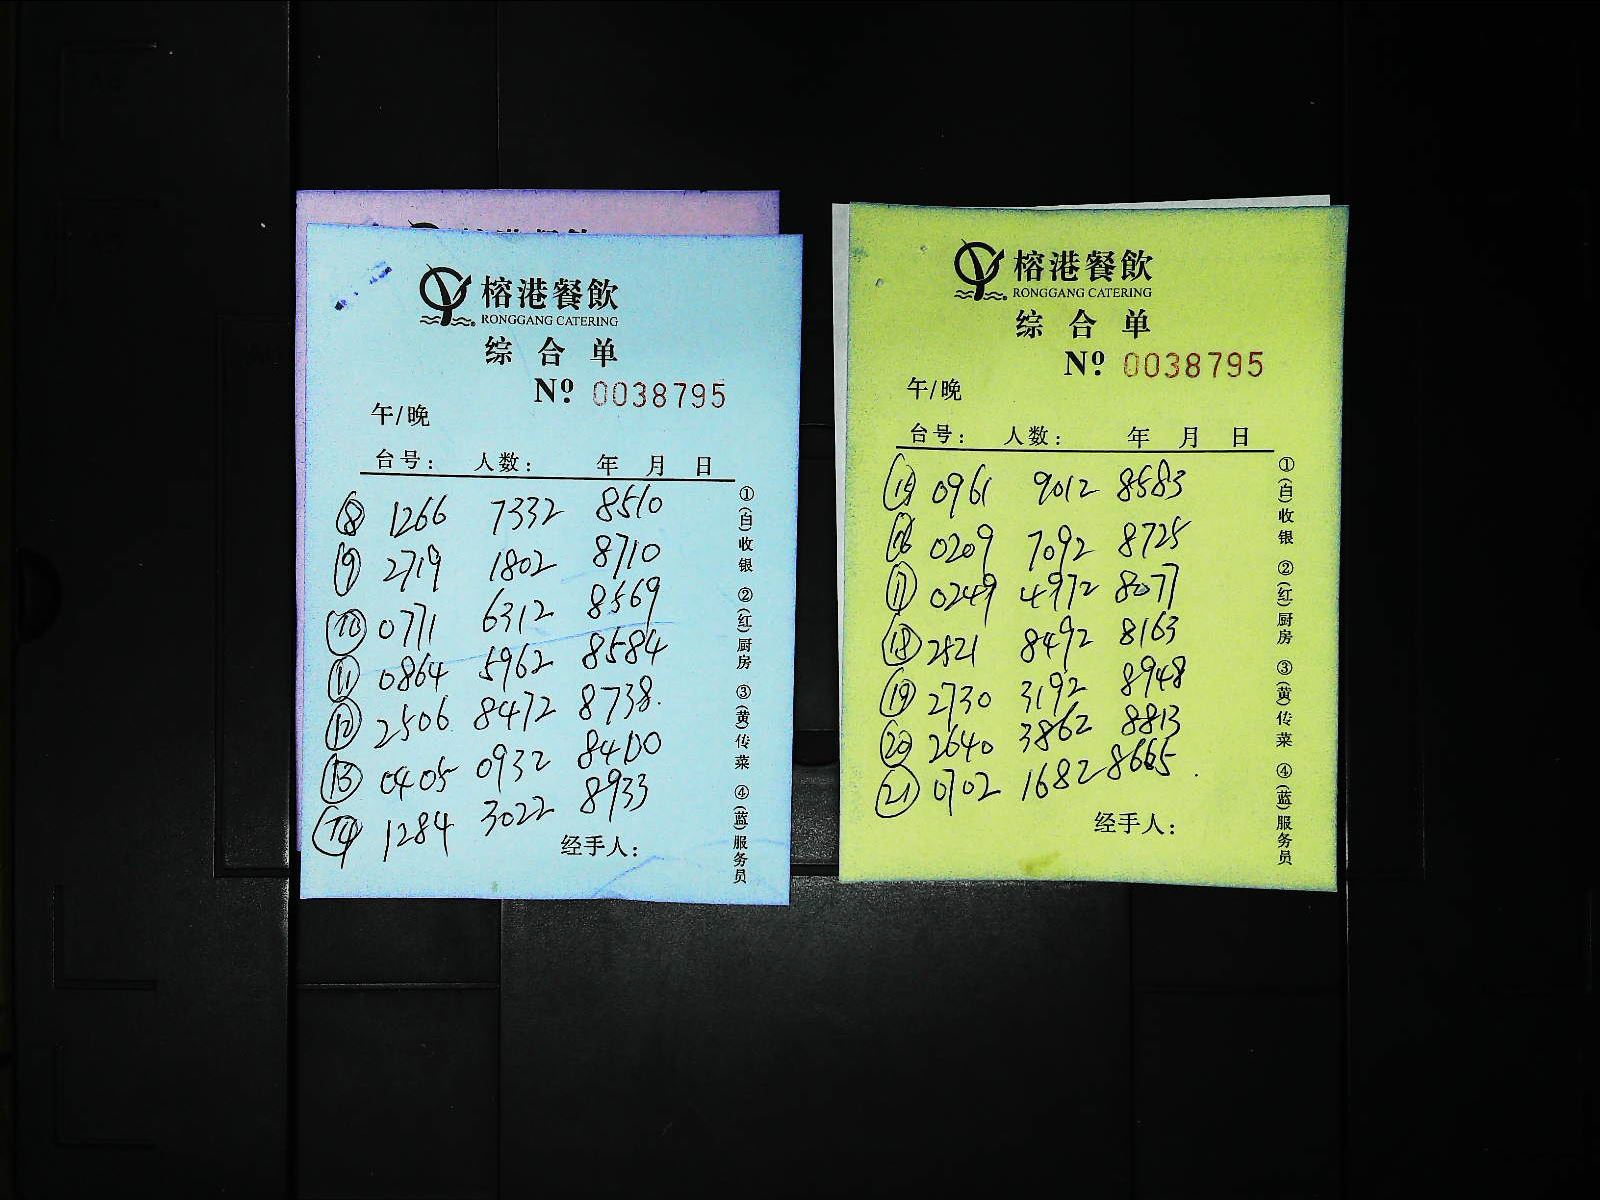 榕港餐飲
RONGGANG CATERING
综合单
Nº 0038795
午/晚
台号： 人数： 年 月 日
⑧ 1266 7332 8510
⑨ 2719 1802 8710
⑩ 0771 6312 8569
⑪ 0864 5962 8584
⑫ 2506 8472 8738.
⑬ 0405 0932 8400
⑭ 1284 3022 8933
经手人：
①(白)收银 ②(红)厨房 ③(黄)传菜 ④(蓝)服务员
榕港餐飲
RONGGANG CATERING
综合单
Nº 0038795
午/晚
台号： 人数： 年 月 日
⑮ 0961 9012 8583
⑯ 0209 7092 8725
⑰ 0249 4972 8077
⑱ 2521 8492 8163
⑲ 2730 3192 8948
⑳ 2640 3862 8813
㉑ 0702 1682 8665.
经手人：
①(白)收银 ②(红)厨房 ③(黄)传菜 ④(蓝)服务员